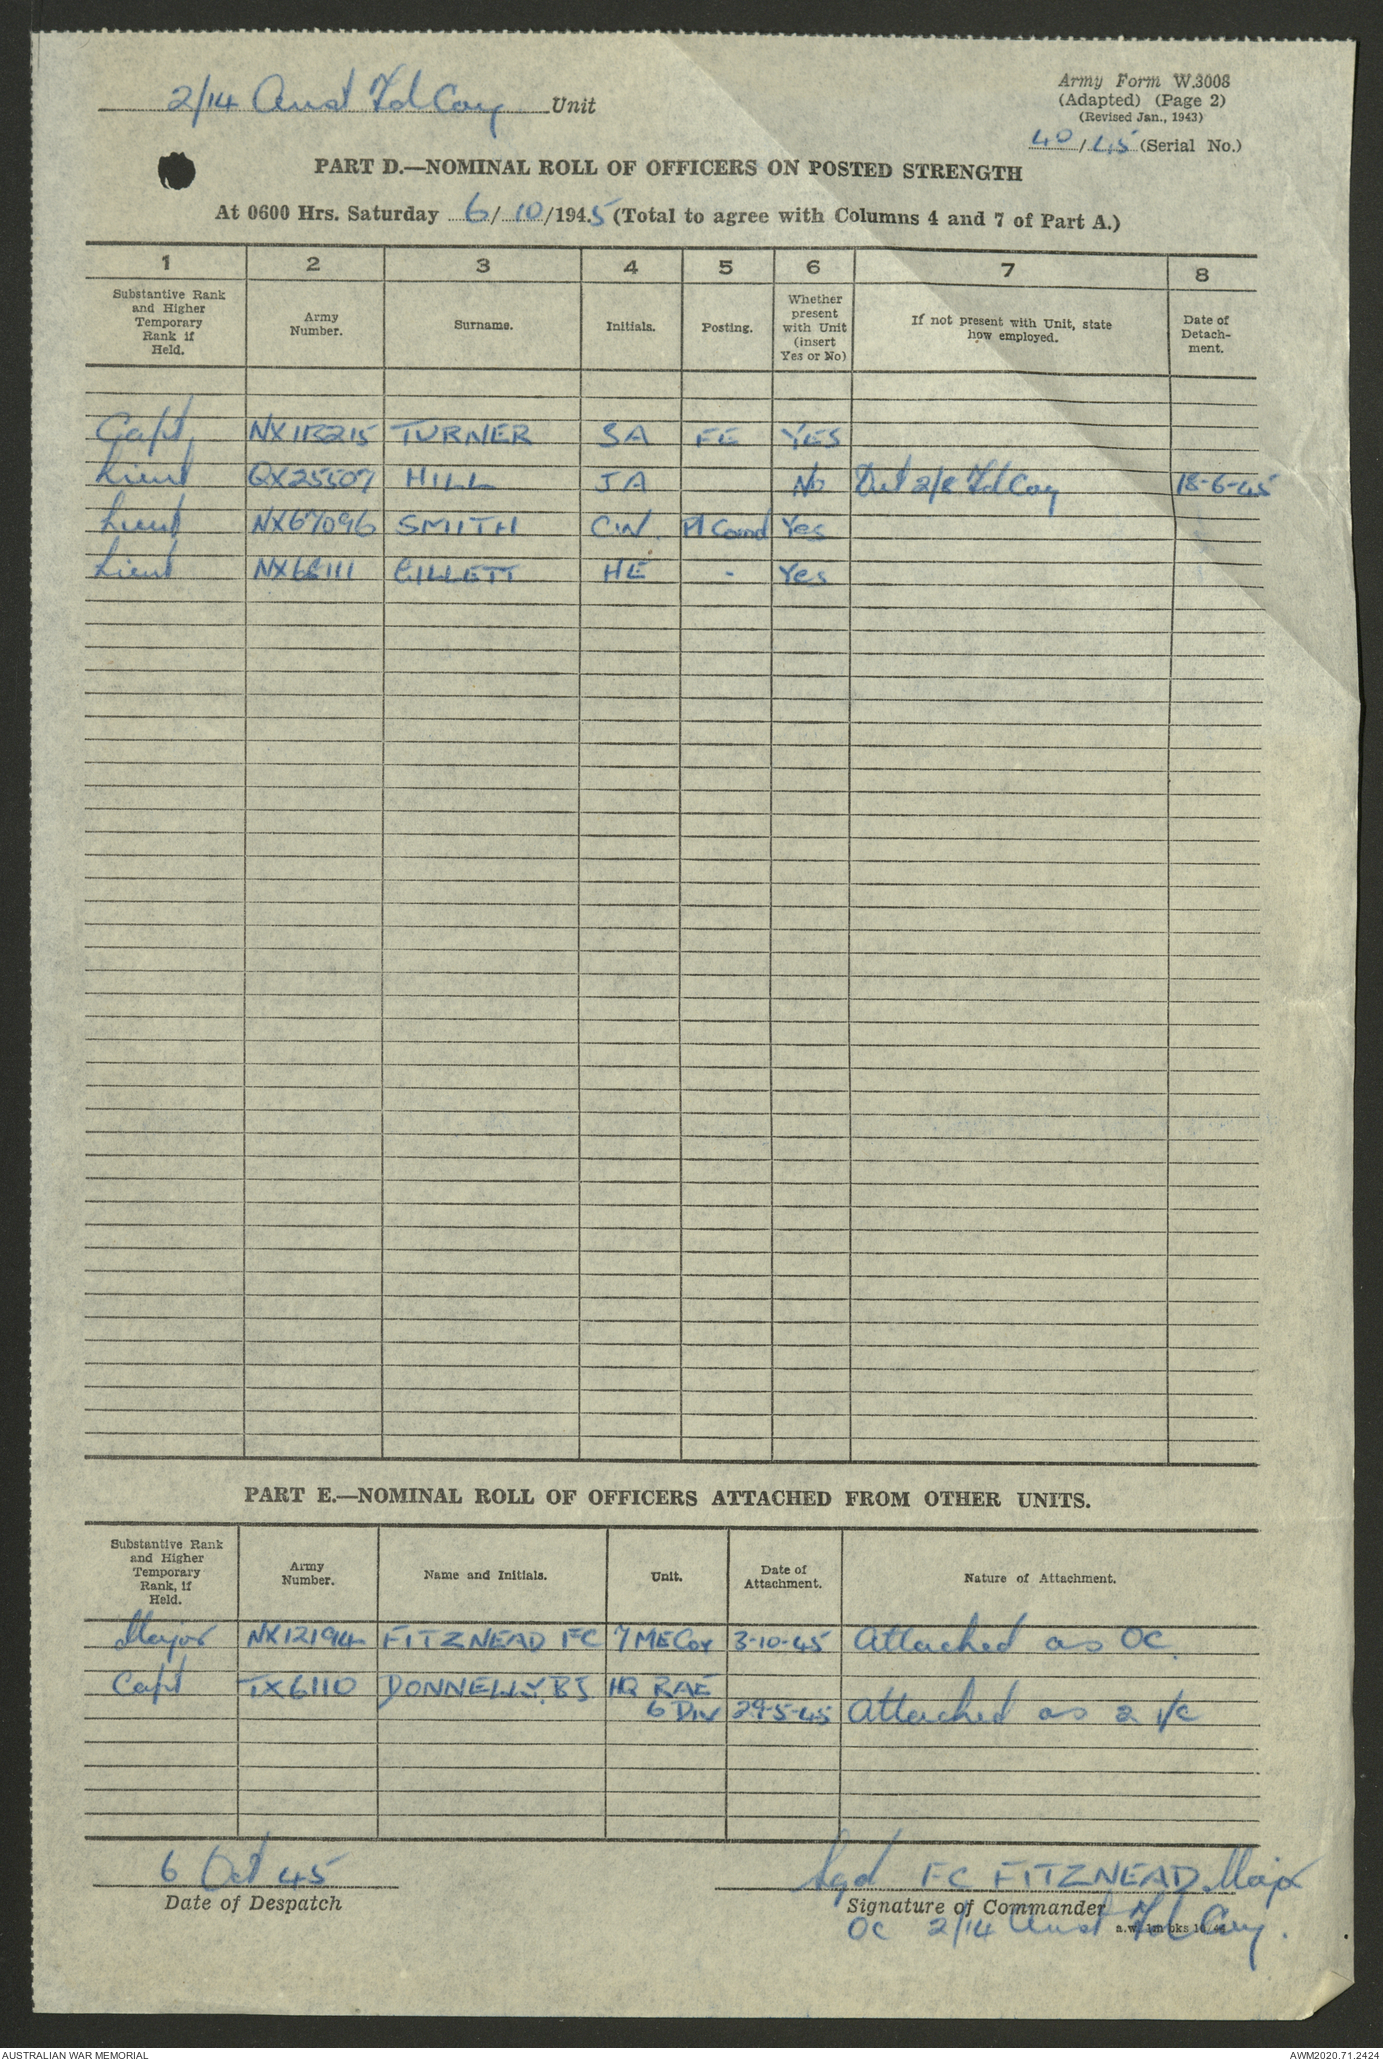 2/14 Aust Fd Coy Unit
Army Form W.3008
(Adapted) (Page 2)
(Revised Jan., 1943)
40/45 (Serial No.)
PART D.—NOMINAL ROLL OF OFFICERS ON POSTED STRENGTH
At 0600 Hrs. Saturday 6/10/1945 (Total to agree with Columns 4 and 7 of Part A.)
1 2 3 4 5 6 7 8
Substantive Rank and Higher Temporary Rank if Held. Army Number. Surname. Initials. Posting. Whether present with Unit (insert Yes or No) If not present with Unit, state how employed. Date of Detachment.
Capt NX113215 TURNER SA FE YES
Lieut QX25507 HILL JA No Det 2/8 Fd Coy 18-6-45
Lieut NX67096 SMITH CW. Pl Comd Yes
Lieut NX68111 GILLETT HE - Yes
PART E.—NOMINAL ROLL OF OFFICERS ATTACHED FROM OTHER UNITS.
Substantive Rank and Higher Temporary Rank, if Held. Army Number. Name and Initials. Unit. Date of Attachment. Nature of Attachment.
Major NX12194 FITZNEAD FC 7 ME Coy 3-10-45 Attached as OC.
Capt TX6110 DONNELLY, BJ HQ RAE
6 Div 29-5-45 Attached as 2 i/c
6 Oct 45
Date of Despatch
Sgd FC FITZNEAD Major
Signature of Commander
OC 2/14 Aust Fd Coy.
AUSTRALIAN WAR MEMORIAL
AWM2020.71.2424